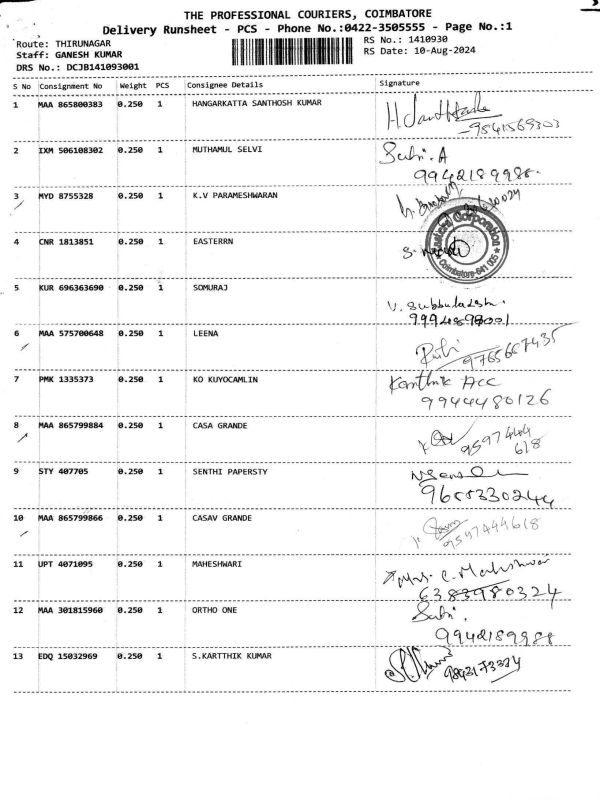 THE PROFESSIONAL COURIERS, COIMBATORE
Delivery Runsheet - PCS - Phone No.:0422-3505555 - Page No.:1
Route: THIRUNAGAR RS No.: 1410930
Staff: GANESH KUMAR RS Date: 10-Aug-2024
DRS No.: DCJB141093001
S No Consignment No Weight PCS Consignee Details Signature
1 MAA 865800383 0.250 1 HANGARKATTA SANTHOSH KUMAR
9841569303
2 IXM 506108302 0.250 1 MUTHAMUL SELVI Sabi. A
9942189988.
3 MYD 8755328 0.250 1 K.V PARAMESHWARAN
4 CNR 1813851 0.250 1 EASTERRN
Corporation
Coimbatore-641 005
5 KUR 696363690 0.250 1 SOMURAJ V. Subbulakshmi.
9994898001
6 MAA 575700648 0.250 1 LEENA Rubi
9765667435
7 PMK 1335373 0.250 1 KO KUYOCAMLIN Karthik Acc
9944480126
8 MAA 865799884 0.250 1 CASA GRANDE
9597444
618
9 STY 407705 0.250 1 SENTHI PAPERSTY
9655330244
10 MAA 865799866 0.250 1 CASAV GRANDE
9597444618
11 UPT 4071095 0.250 1 MAHESHWARI Mrs. C. Maheshwari
6383980324
12 MAA 301815960 0.250 1 ORTHO ONE Sabi.
9942189988
13 EDQ 15032969 0.250 1 S.KARTTHIK KUMAR